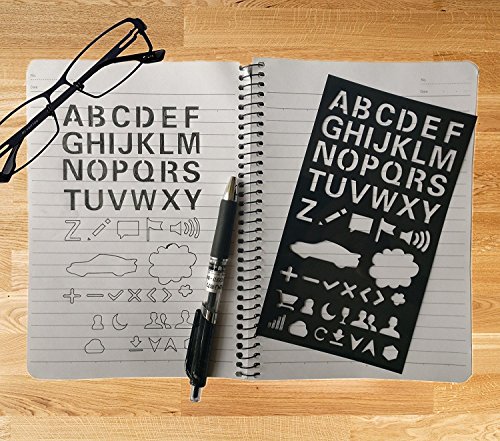 No.
Date
ABCDEF
GHIJKLM
NOPQRS
TUVWXY
Z
ABCDEF
GHIJKLM
NOPQRS
TUVWXY
Z